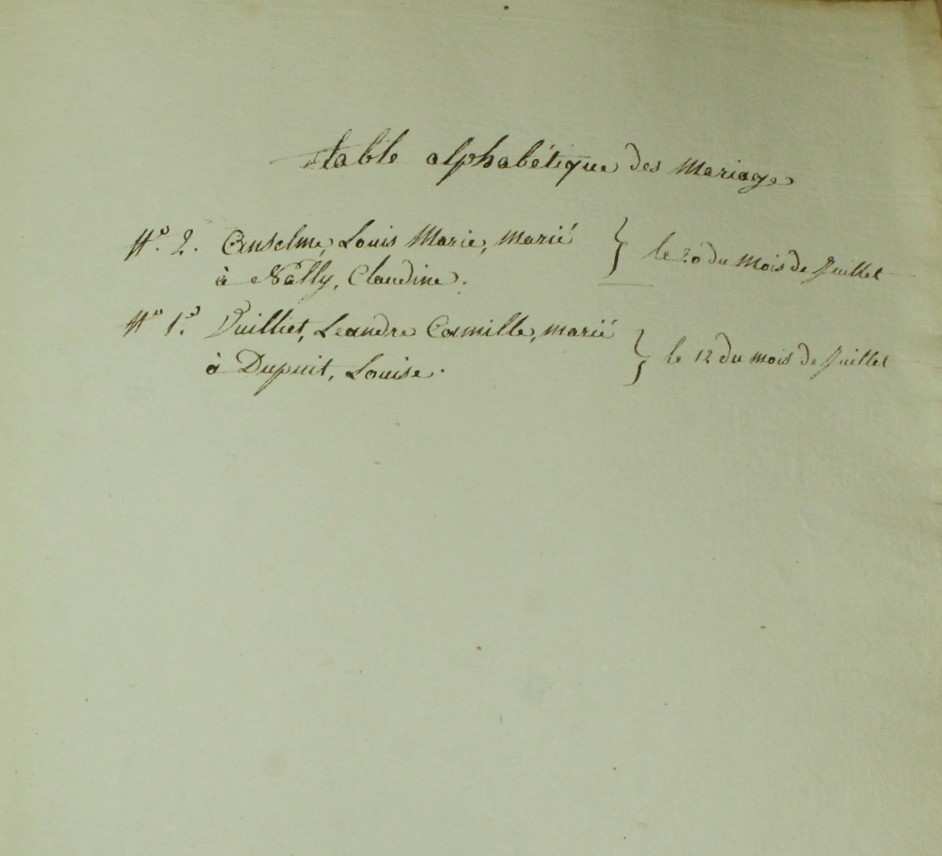 table alphabétique des Mariages
N.° 2. Anselme, Louis Marie, marié
à Nally, Claudine. } le 20 du mois de Juillet
N.° 1.° Vuilliet, Leandre Camille, marié
à Dupuit, Louise. } le 12 du mois de Juillet